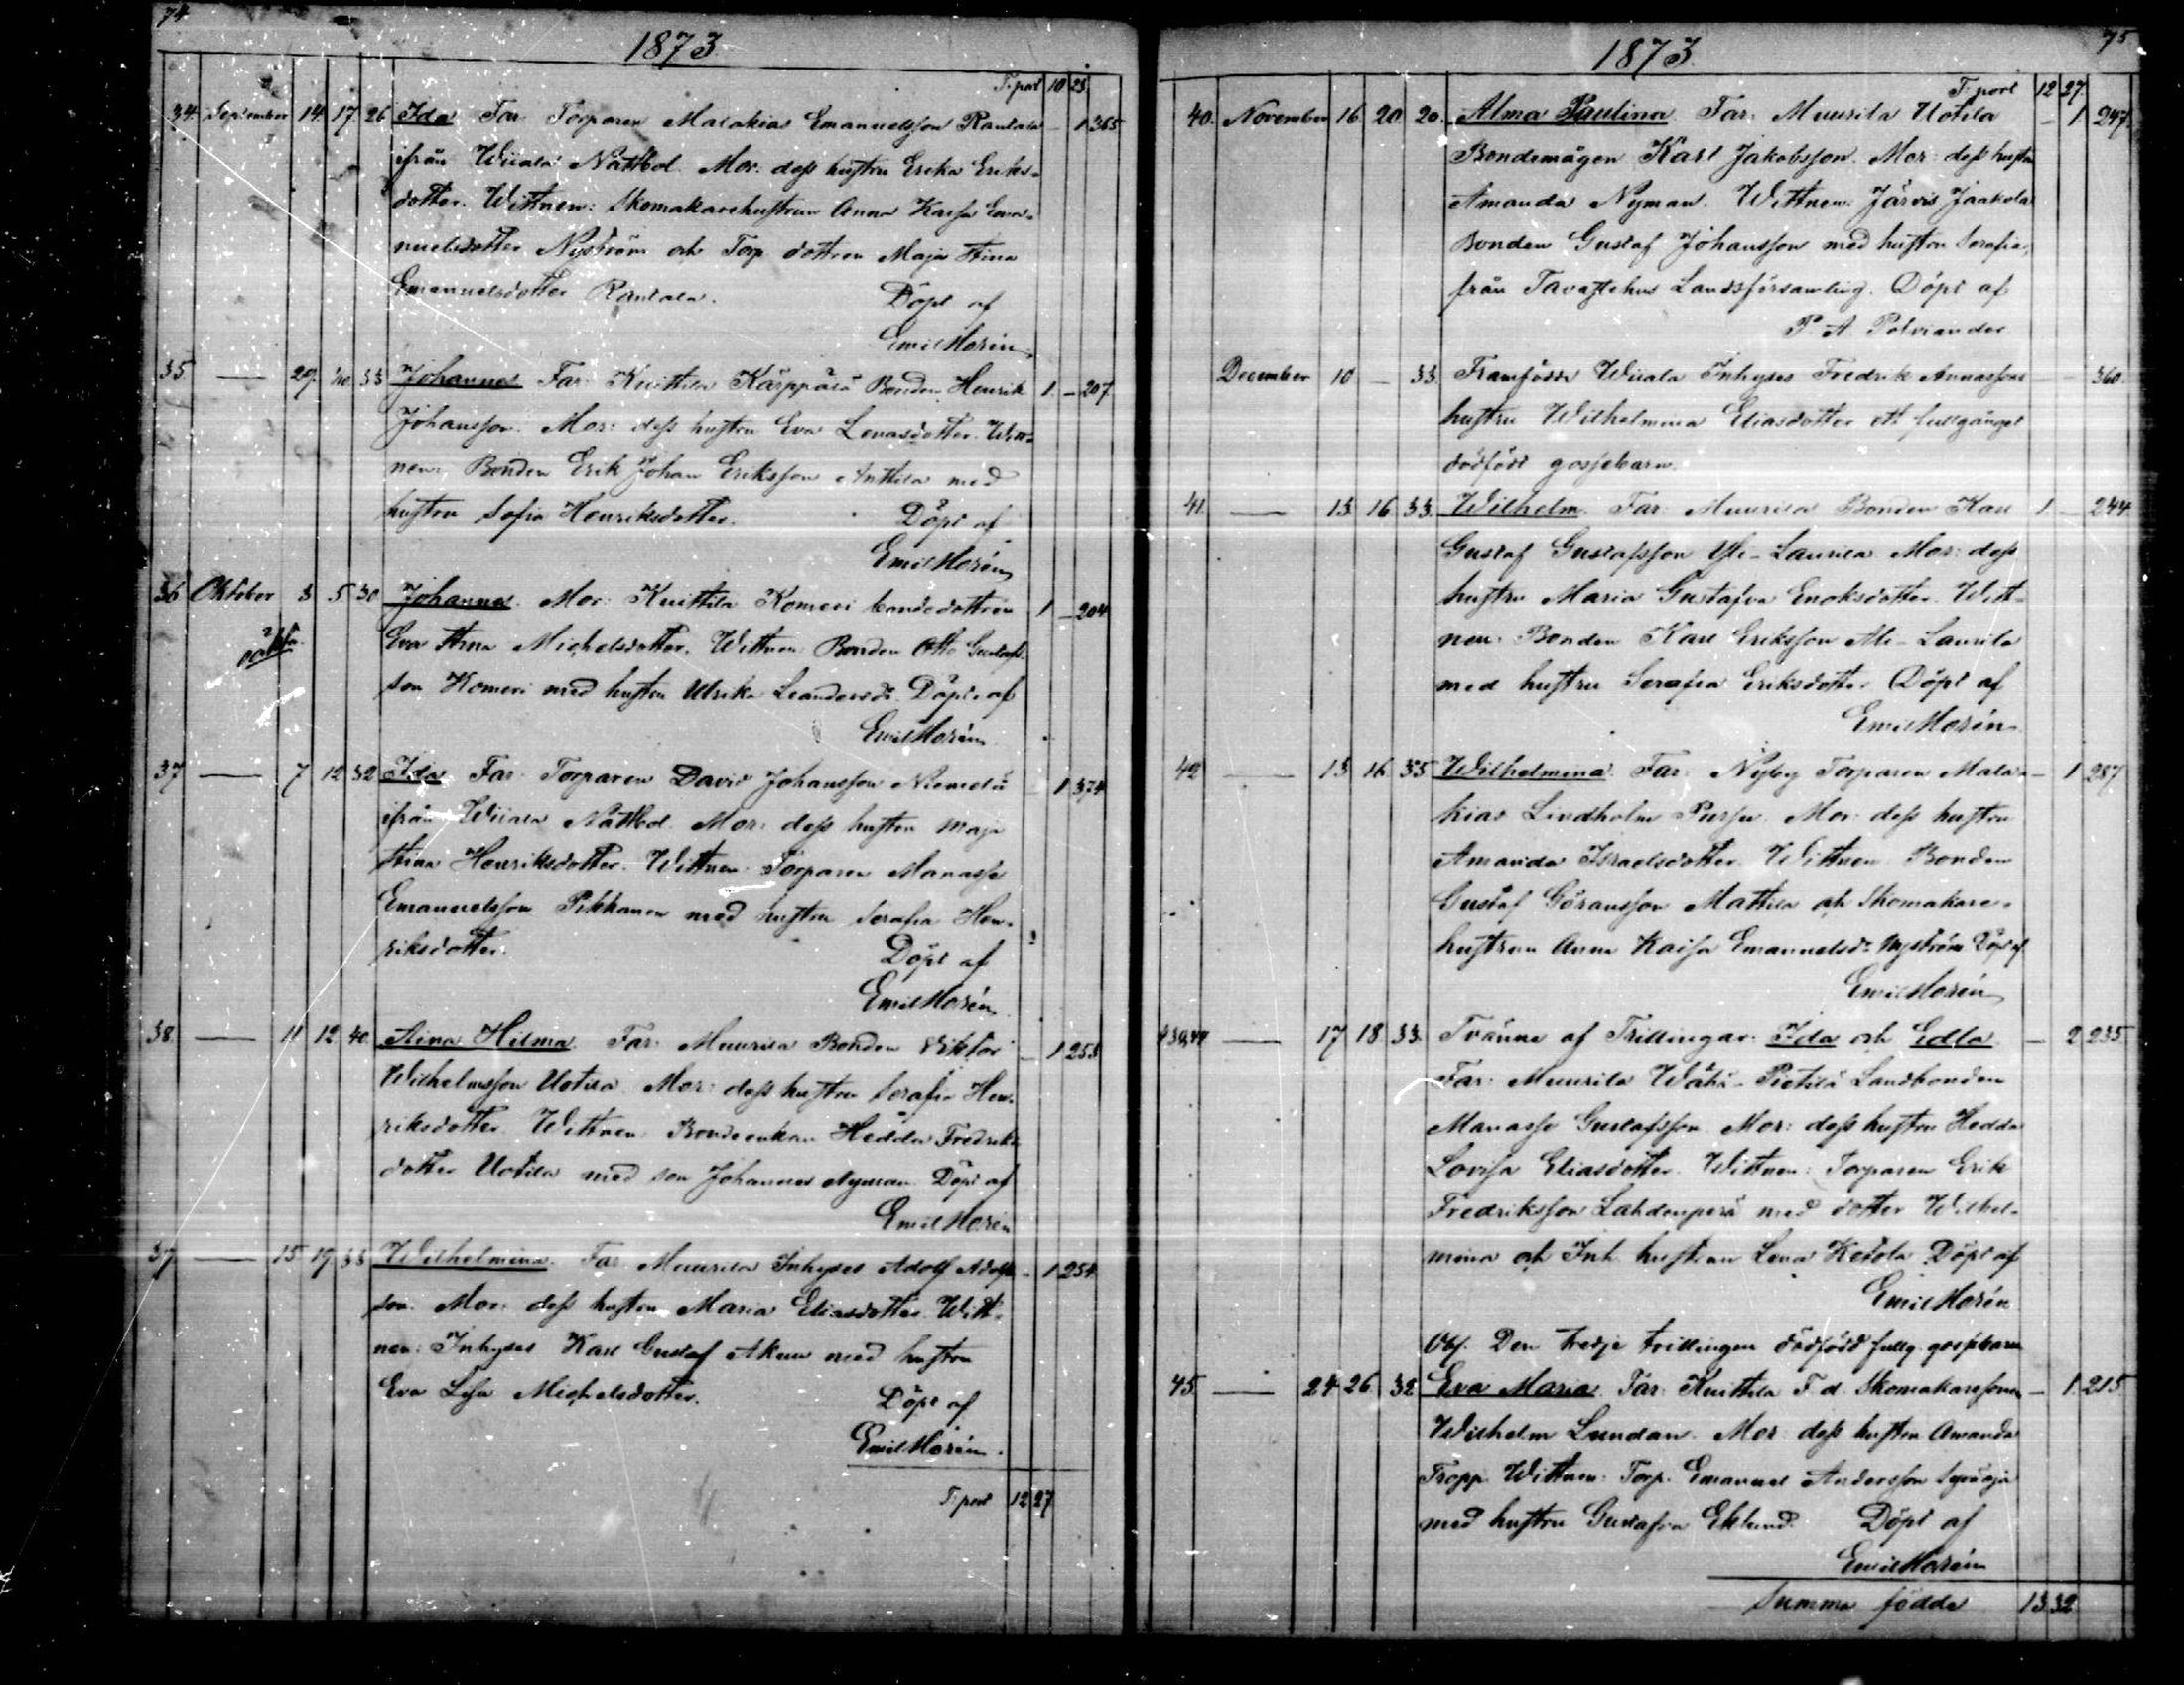 74
1873
T. port 10 23
34. September 14. 17 26 Ida Far Torparen Malakias Emanuelsson Rantala - 1 365
ifrån Wiiala Nattbol. Mor: dess hustru Erika Eriks-
dotter. Wittnen: Skomakarehustrun Anna Kaisa Ema-
nuelsdotter Nyström och Torp. dottren Maja Stina
Emanuelsdotter Rantala. Döpt af
Emil Horén
35 — 29. 33 Johannes Far: Knittila Kärppälä Bonden Henrik 1. - 207
Johansson. Mor: dess hustru Eva Lenasdotter. Witt-
nen: Bonden Erik Johan Eriksson Anttila med
hustru Sofia Henriksdotter. Döpt af
Emil Horén
36 Oktober 3 5 30 Johannes. Mor: Knittila Komeri bondedottren 1 - 204
oäkta
Eva Stina Michelsdotter. Wittnen Bonden Otto Gustafs-
son Komeri med hustru Ulrika Leandersdr Döpt af
Emil Horén
37 — 7 12 32 Ida Far: Torparen David Johansson Niemelä - 1 374
ifrån Wiiala Nattbol. Mor: dess hustru Maja
Stina Henriksdotter. Wittnen: Torparen Manasse
Emanuelsson Pikkanen med hustru Serafia Hen-
riksdotter. Döpt af
Emil Horén
38. — 11 12 40. Aina Hilma. Far: Muurila Bonden Viktor - 1 253
Wilhelmsson Uotila. Mor: dess hustru Serafia Hen-
riksdotter. Wittnen: Bondeenkan Hedda Fredriks
dotter Uotila med son Johannes Nyman. Döpt af
Emil Horén
39 — 15 19 33 Wilhelmina. Far Muurila Inhyses Adolf Adolfs- - 1 254
son. Mor: dess hustru Maria Eliasdotter. Witt-
nen: Inhyses Karl Gustaf Akum med hustru
Eva Lisa Michelsdotter. Döpt af
Emil Horén.
T. port 12 27
75
1873
T. port 12 27.
40. November 16 20 20. Alma Paulina. Far: Muurila Uotila - 1 247
Bondemågen Karl Jakobsson. Mor: dess hustru
Amanda Nyman. Wittnen: Järvis Jaakola
Bonden Gustaf Johansson med hustru Serafia,
från Tavastehus Landsförsamling. Döpt af
P. A. Polviander
December 10 — 33. Framfödde Wiiala Inhyses Fredrik Annassons - - 360.
hustru Wilhelmina Eliasdotter ett fullgånget
dödfödt gossebarn.
41. — 13 16 33. Wilhelm. Far: Muurila Bonden Karl 1 - 244
Gustaf Gustafsson Yli-Laurila. Mor: dess
hustru Maria Gustafva Enoksdotter. Witt-
nen: Bonden Karl Eriksson Ali-Laurila
med hustru Serafia Eriksdotter. Döpt af
Emil Horén
42 — 13 16. 35 Wilhelmina. Far: Nyby Torparen Mala- - 1 287
kias Lindholm Mor: dess hustru
Amanda Israelsdotter. Wittnen: Bonden
Gustaf Göransson Mattila och Skomakare-
hustrun Anna Kaisa Emanuelsdr Nyström Döpt af
Emil Horén
43 & 44 — 17 18 33. Tvänne af Trillingar: Ida och Edla - 2 235
Far: Muurila Wähä-Pietilä Landbonden
Manasse Gustafsson. Mor: dess hustru Hedda
Lovisa Eliasdotter. Wittnen: Torparen Erik
Fredriksson Lahdenperä med dotter Wilhel-
mina och Inh. hustrun Lena Ketola Döpt af
Emil Horén
Obs. Den tredje trillingen dödfödd fullg. gossebarn
45. — 24 26 32 Eva Maria. Far: Knittila F. d. Skomakaresonen - 1 215
Wilhelm Lundan. Mor dess hustru Amanda
Tropp. Wittnen: Torp. Emanuel Andersson
med hustru Gustafva Eklund. Döpt af
Emil Horén
Summa födda 13 32